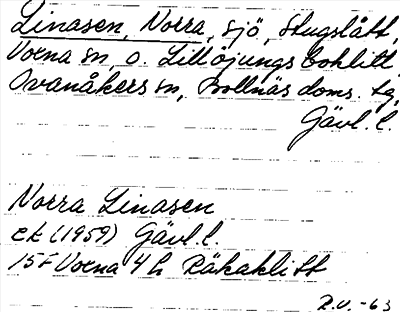 Linasen, Norra, sjö, Stugslått,
Voxna sn o. Lillöjungs bohlitt
Ovanåkers sn, Bollnäs doms. tg,
Gävl. l.
Norra Linasen
ek (1959) Gävl. l.
15F Voxna 4 h Räkaklitt
R.U. -63